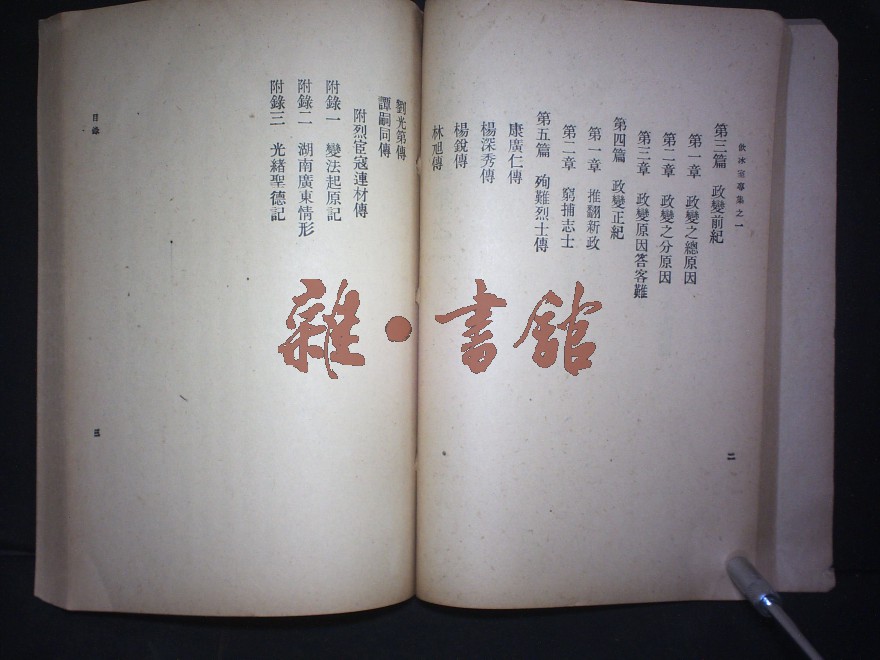 飲冰室專集之一
第三篇　政變前紀
第一章　政變之總原因
第二章　政變之分原因
第三章　政變原因答客難
第四篇　政變正紀
第一章　推翻新政
第二章　窮捕志士
第五篇　殉難烈士傳
康廣仁傳
楊深秀傳
楊銳傳
林旭傳
二
劉光第傳
譚嗣同傳
附烈宦寇連材傳
附錄一　變法起原記
附錄二　湖南廣東情形
附錄三　光緒聖德記
目錄
三
雜·書舘